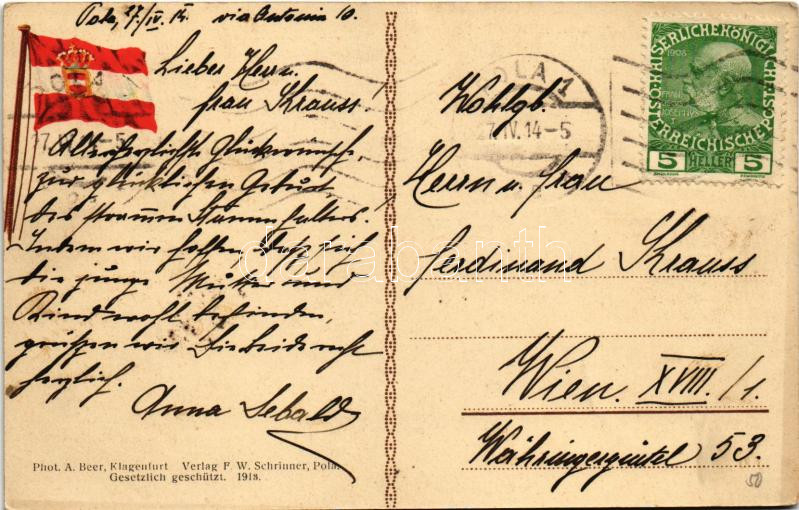 Pola, 27/IV. 14. via Antonia 10.
Lieber Herr u.
frau Krauss!
Allerherzlichste Glückwünsche,
zur glücklichen Geburt
des strammen Stammhalters!
Indem wir hoffen, dass sich
die junge Mutter und
Kind wohl befinden,
grüßen wir Sie beide recht
herzlich.
Anna Sebald
Phot. A. Beer, Klagenfurt Verlag F. W. Schrinner, Pola.
Gesetzlich geschützt. 1913.
POLA 1
27.IV.14-5
KAISERLICHEKÖNIGLICHE
ÖSTERREICHISCHE POST
1908
5 HELLER 5
Wohlgb.
Herrn u. frau
Ferdinand Krauss
Wien. XVIII./1.
Währingergürtel 53.
50
darabanth